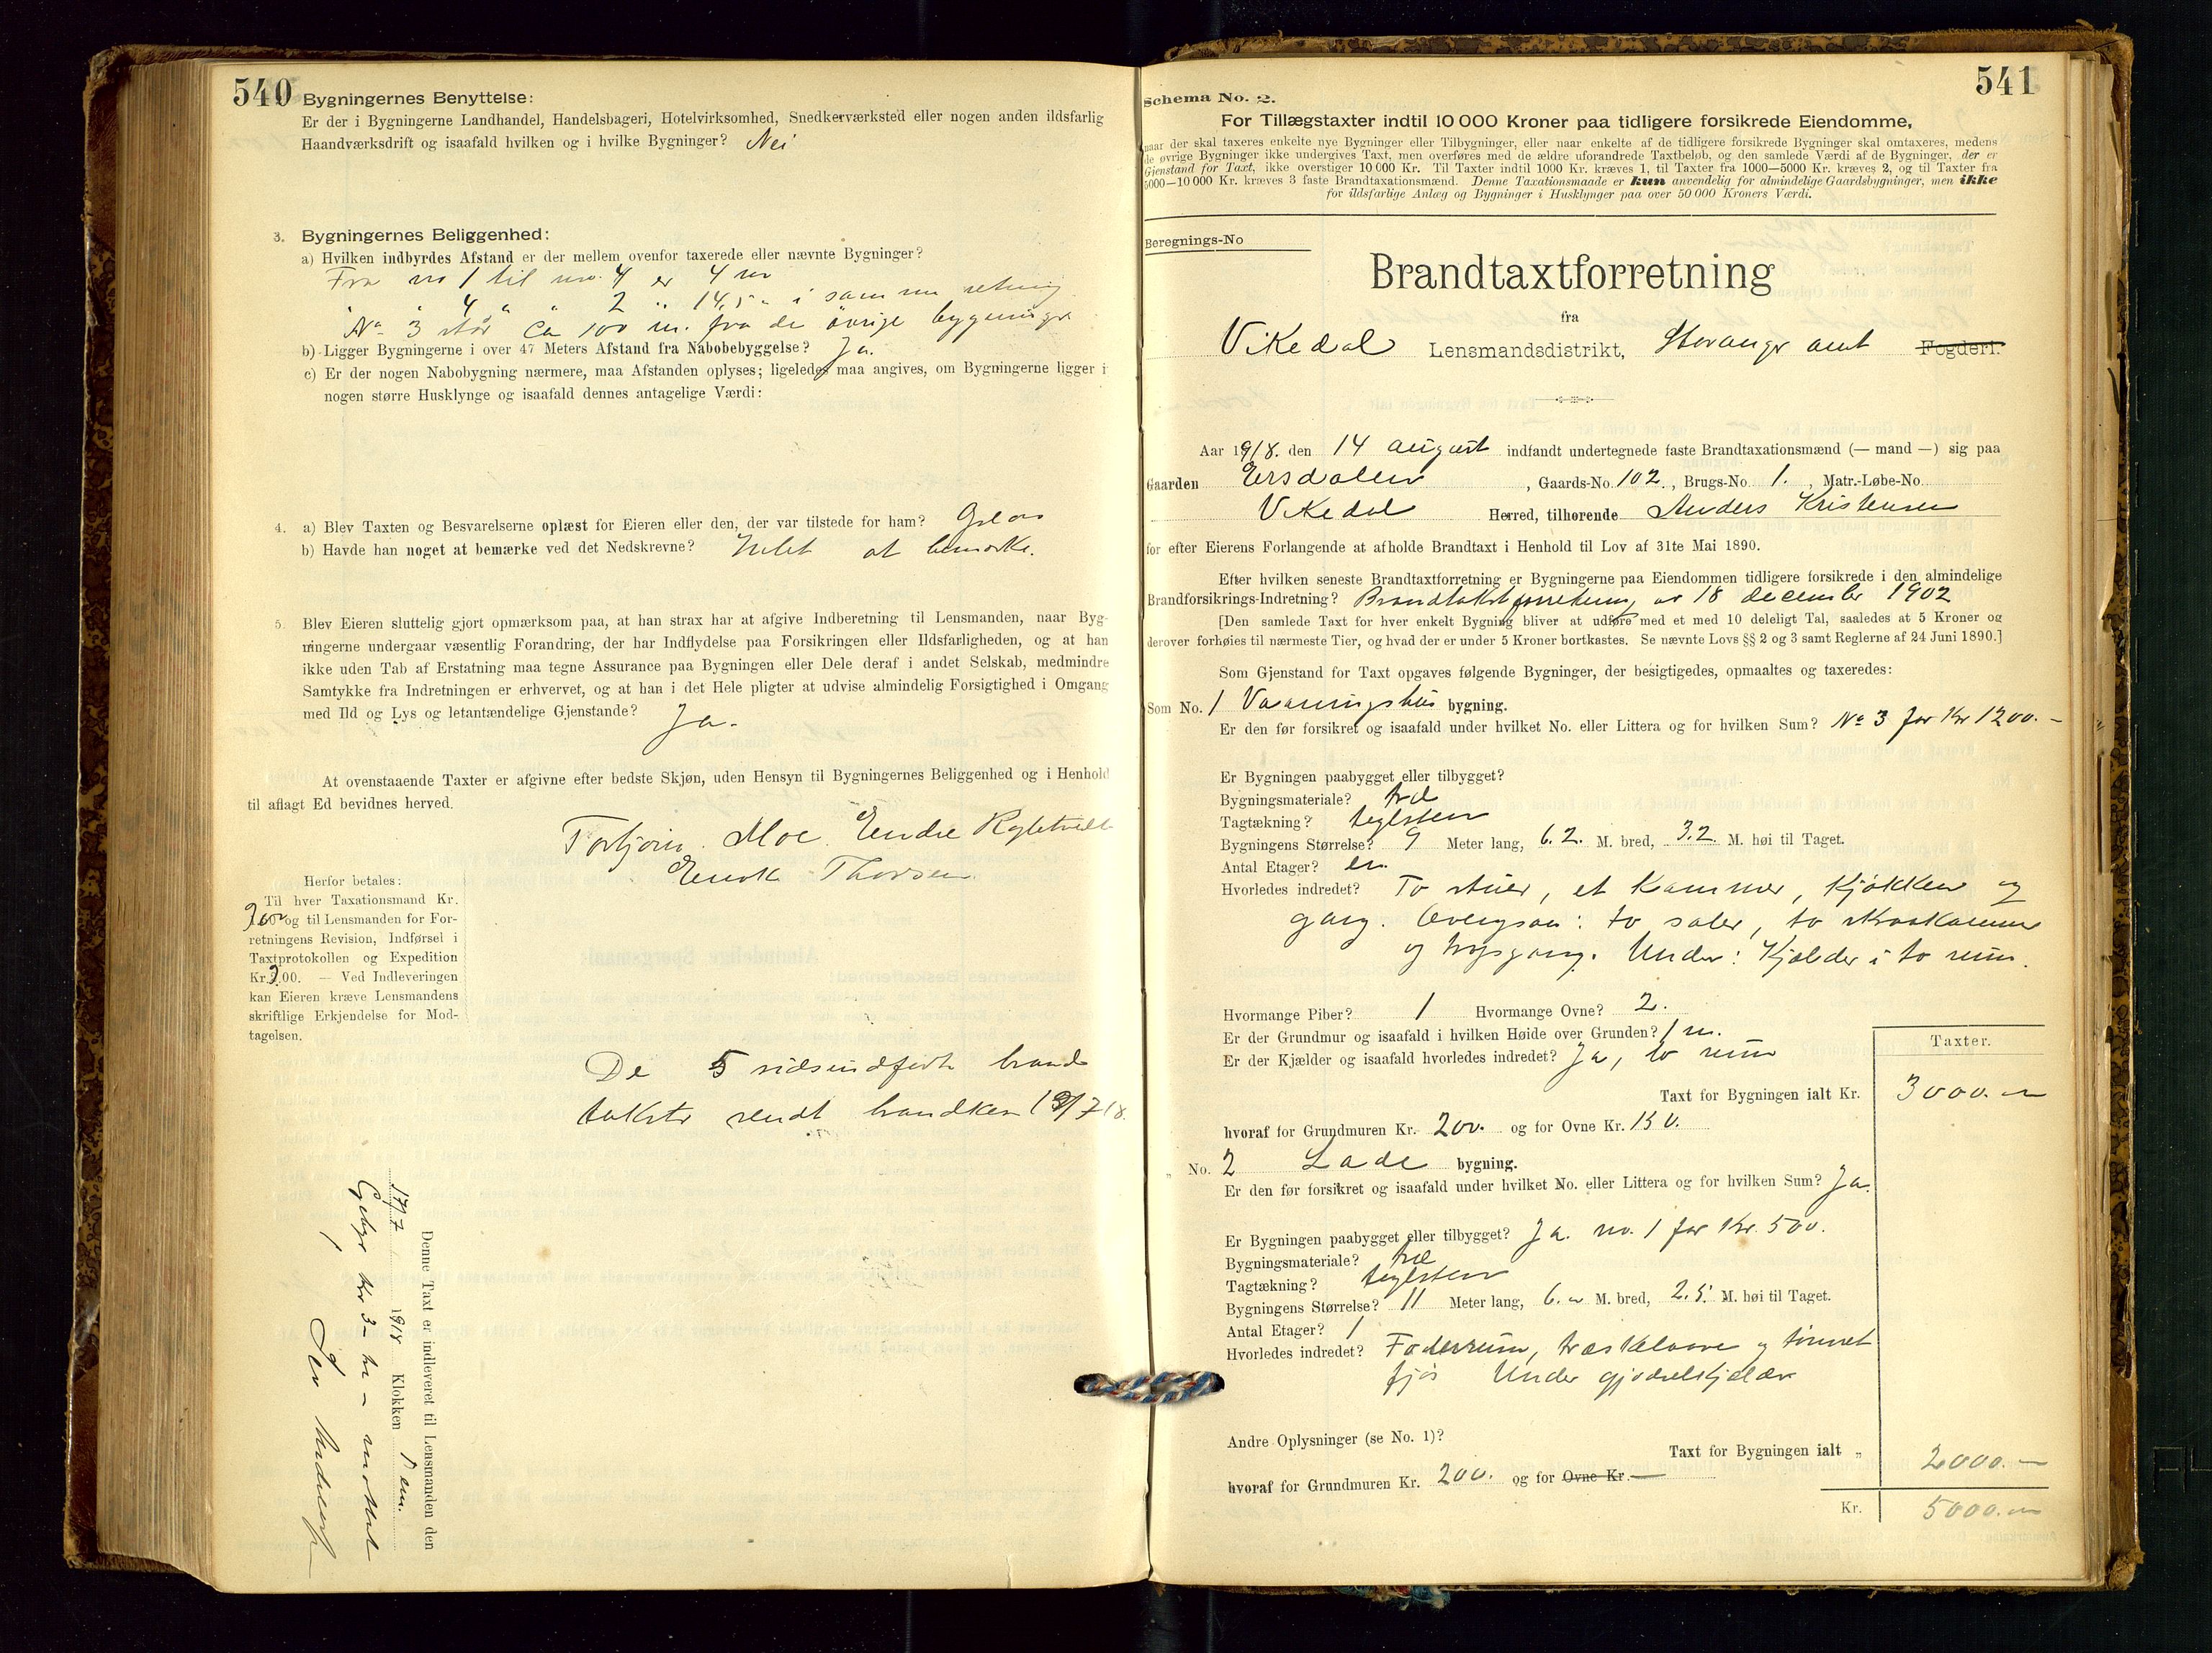 540
Bygningernes Benyttelse:
Er der i Bygningerne Landhandel, Handelsbageri, Hotelvirksomhed, Snedkerværksted eller nogen anden ildsfarlig
Haandværksdrift og isaafald hvilken og i hvilke Bygninger? Nei
3. Bygningernes Beliggenhed:
a) Hvilken indbyrdes Afstand er der mellem ovenfor taxerede eller nævnte Bygninger?
Fra no 1 til no. 4 er 4 m
" " 4 " " 2 " 14,5 " i samme retning
No 3 står ca 100 m. fra de øvrige bygninger
b) Ligger Bygningerne i over 47 Meters Afstand fra Nabobebyggelse? Ja.
c) Er der nogen Nabobygning nærmere, maa Afstanden oplyses; ligeledes maa angives, om Bygningerne ligger i
nogen større Husklynge og isaafald dennes antagelige Værdi:
4. a) Blev Taxten og Besvarelserne oplæst for Eieren eller den, der var tilstede for ham?
b) Havde han noget at bemærke ved det Nedskrevne? Intet at bemærke.
5. Blev Eieren sluttelig gjort opmærksom paa, at han strax har at afgive Indberetning til Lensmanden, naar Byg-
ningerne undergaar væsentlig Forandring, der har Indflydelse paa Forsikringen eller Ildsfarligheden, og at han
ikke uden Tab af Erstatning maa tegne Assurance paa Bygningen eller Dele deraf i andet Selskab, medmindre
Samtykke fra Indretningen er erhvervet, og at han i det Hele pligter at udvise almindelig Forsigtighed i Omgang
med Ild og Lys og letantændelige Gjenstande? Ja.
At ovenstaaende Taxter er afgivne efter bedste Skjøn, uden Hensyn til Bygningernes Beliggenhed og i Henhold
til aflagt Ed bevidnes herved.
Torbjørn Moe. Endre
Enok Thorsen
Herfor betales:
Til hver Taxationsmand Kr.
og til Lensmanden for For-
retningens Revision, Indførsel i
Taxtprotokollen og Expedition
Kr. 3.00. — Ved Indleveringen
kan Eieren kræve Lensmandens
skriftlige Erkjendelse for Mod-
tagelsen.
De 5 sidsindførte brand
takster sendt brandken 19/7 18.
Denne Taxt er indleveret til Lensmanden den
17/7 1918 Klokken 1 em.
Gebyr kr 3- tre - mottat
541
Schema No. 2.
For Tillægstaxter indtil 10 000 Kroner paa tidligere forsikrede Eiendomme,
naar der skal taxeres enkelte nye Bygninger eller Tilbygninger, eller naar enkelte af de tidligere forsikrede Bygninger skal omtaxeres, medens
de øvrige Bygninger ikke undergives Taxt, men overføres med de ældre uforandrede Taxtbeløb, og den samlede Værdi af de Bygninger, der er
Gjenstand for Taxt, ikke overstiger 10 000 Kr. Til Taxter indtil 1000 Kr. kræves 1, til Taxter fra 1000—5000 Kr. kræves 2, og til Taxter fra
5000—10 000 Kr. kræves 3 faste Brandtaxationsmænd. Denne Taxationsmaade er kun anvendelig for almindelige Gaardsbygninger, men ikke
for ildsfarlige Anlæg og Bygninger i Husklynger paa over 50 000 Kroners Værdi.
Beregnings-No
Brandtaxtforretning
fra
Vikedal Lensmandsdistrikt, Stavanger amt Fogderi.
Aar 1918. den 14 august indfandt undertegnede faste Brandtaxationsmænd (— mand —) sig paa
Gaarden Ersdalen , Gaards-No. 102 , Brugs-No. 1. , Matr.-Løbe-No.
Vikedal Herred, tilhørende Anders Kristensen
for efter Eierens Forlangende at afholde Brandtaxt i Henhold til Lov af 31te Mai 1890.
Efter hvilken seneste Brandtaxtforretning er Bygningerne paa Eiendommen tidligere forsikrede i den almindelige
Brandforsikrings-Indretning? Brandtakstforretning av 18 december 1902
[Den samlede Taxt for hver enkelt Bygning bliver at udføre med et med 10 deleligt Tal, saaledes at 5 Kroner og
derover forhøies til nærmeste Tier, og hvad der er under 5 Kroner bortkastes. Se nævnte Lovs §§ 2 og 3 samt Reglerne af 24 Juni 1890.]
Som Gjenstand for Taxt opgaves følgende Bygninger, der besigtigedes, opmaaltes og taxeredes:
Som No. 1 Vaaningshus bygning.
Er den før forsikret og isaafald under hvilket No. eller Littera og for hvilken Sum? No 3 for Kr 1200. -
Er Bygningen paabygget eller tilbygget?
Bygningsmateriale? træ
Tagtækning? teglsten
Bygningens Størrelse? 9 Meter lang, 6.2. M. bred, 3.2. M. høi til Taget.
Antal Etager? en
Hvorledes indredet? To stuer, et kammer, kjøkken og
gang. Ovenpaa: to saler, to
og trapgang. Under: Kjælder i to rum.
Hvormange Piber? 1 Hvormange Ovne? 2.
Er der Grundmur og isaafald i hvilken Høide over Grunden? 1 m.
Er der Kjælder og isaafald hvorledes indredet? Ja, to rum
Taxter.
Taxt for Bygningen ialt Kr. 3000. -
hvoraf for Grundmuren Kr. 200. og for Ovne Kr. 150.
" No. 2 Lade bygning.
Er den før forsikret og isaafald under hvilket No. eller Littera og for hvilken Sum? Ja.
Er Bygningen paabygget eller tilbygget? Ja. no. 1 for Kr. 500.
Bygningsmateriale? træ
Tagtækning? teglsten
Bygningens Størrelse? 11 Meter lang, 6. - M. bred, 2.5. M. høi til Taget.
Antal Etager? 1
Hvorledes indredet? Foderrum, træskelaave og tømret
fjøs Under gjødselskjelder
Andre Oplysninger (se No. 1)?
Taxt for Bygningen ialt " 2000. —
hvoraf for Grundmuren Kr. 200. og for Ovne Kr. —
Kr. 5000. -